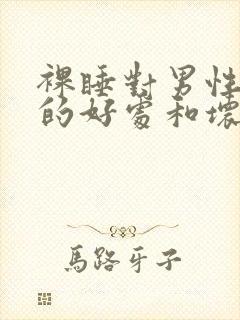 裸睡對男性
的好處和壞
馬路牙子